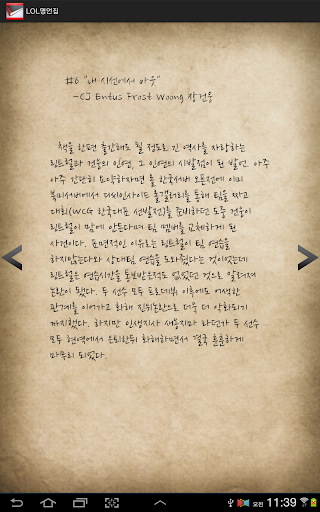 LOL명언집
#6 "내 시선에서 아웃"
-CJ Entus Frost Woong 장건웅
책을 한편 출간해도 될 정도로 긴 역사를 자랑하는
린트럴과 건웅의 인연, 그 인연의 시발점이 된 발언. 아주
아주 간단히 요약하자면 롤 한국서버 오픈전에 이미
북미서버에서 디씨인사이드 롤갤러리를 통해 팀을 짜고
대회(WCG 한국대표 선발전)를 준비하던 도중 건웅이
린트럴이 맘에 안든다며 팀 멤버를 교체하게 된
사건이다. 표면적인 이유로는 린트럴이 팀 연습을
하지않는다와 상대팀 연습을 도와줬다는 것이었는데
린트럴은 연습시간을 통보받은적도 없었던 것으로 알려져
논란이 됐다. 두 선수 모두 프로데뷔 이후에도 어색한
관계를 이어가고 화해 진위논란으로 더욱 더 악화되기
까지했다. 하지만 인생지사 새옹지마 라던가 두 선수
모두 현역에서 은퇴한뒤 화해하면서 결국 훈훈하게
마무리 되었다.
오전 11:39